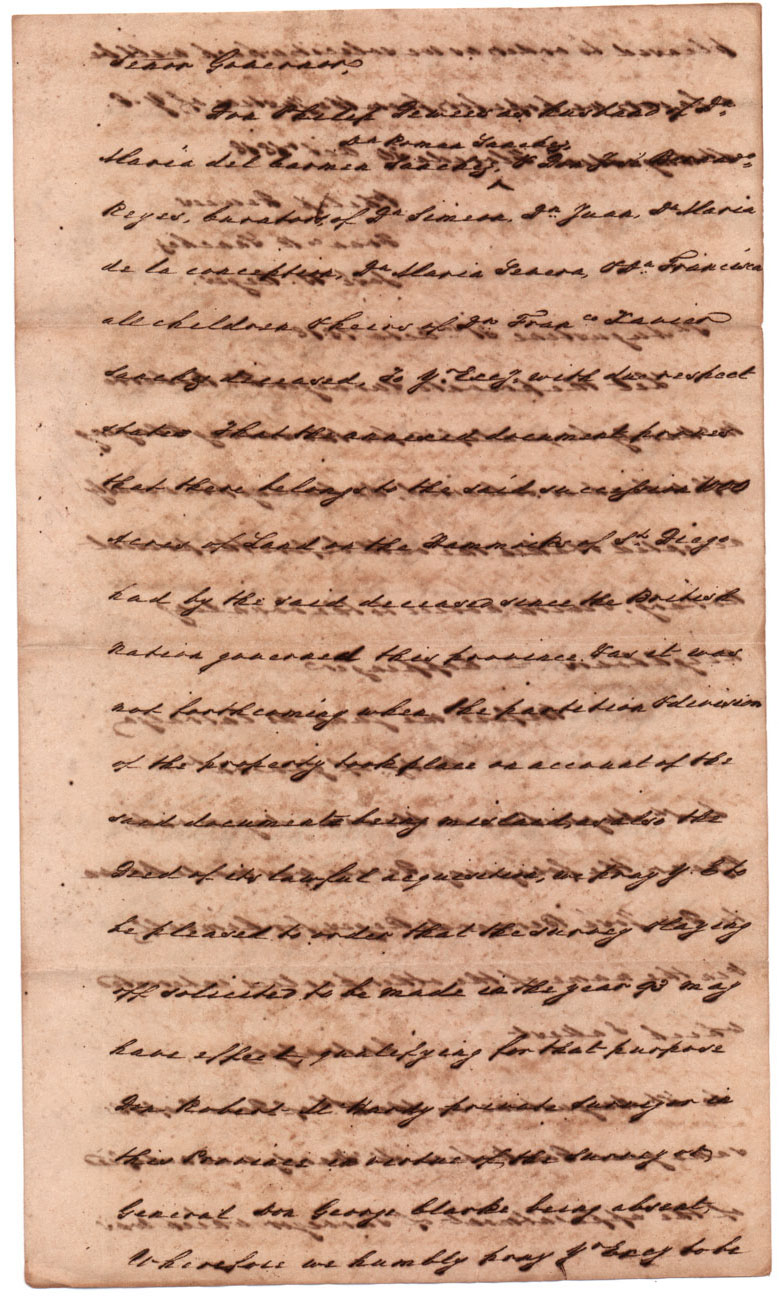 Señor Governor,
Don Philip Dewees as husband of Dª
Dn Roman Sanchez,
Maria del Carmen Sanchez, & Don José
Reyes, Curators, of Dª Simeon, Dn Juan, Dª Maria
de la conception, Dª Maria Genera, & Dª Francisca
all children & heirs of Dn Franco Xavier
Sanchez deceased, To Yr Excy. with due respect
states That the annexed document proves
that there belongs to the said succession 1000
Acres of Land on the Hammocks of St. Diego
had by the said deceased since the British
Nation governed this province, & as it was
not forthcoming when the partition & division
of the property took place on account of the
said documents being mislaid, as also the
Deed of its lawful acquisition, we pray Y. E to
be pleased to order that the survey & laying
off solicited to be made in the year 93 may
have effect, qualifying for that purpose
Don Robert Mc Hardy private Surveyor in
this Province in virtue of, the Surveyor,
General Don George Clarke, being absent,
Wherefore we humbly pray Yr Excy to be